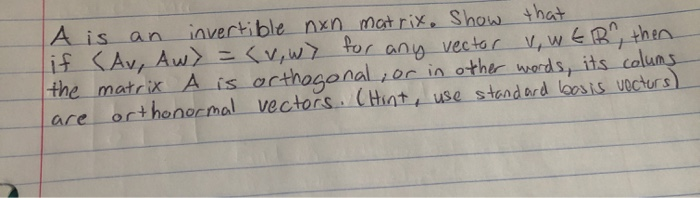 A is an invertible nxn matrix. Show that
if <Av, Aw> = <v,w> for any vector v, w ∈ ℝⁿ, then
the matrix A is orthogonal, or in other words, its colums
are orthonormal vectors. (Hint, use standard basis vectors)